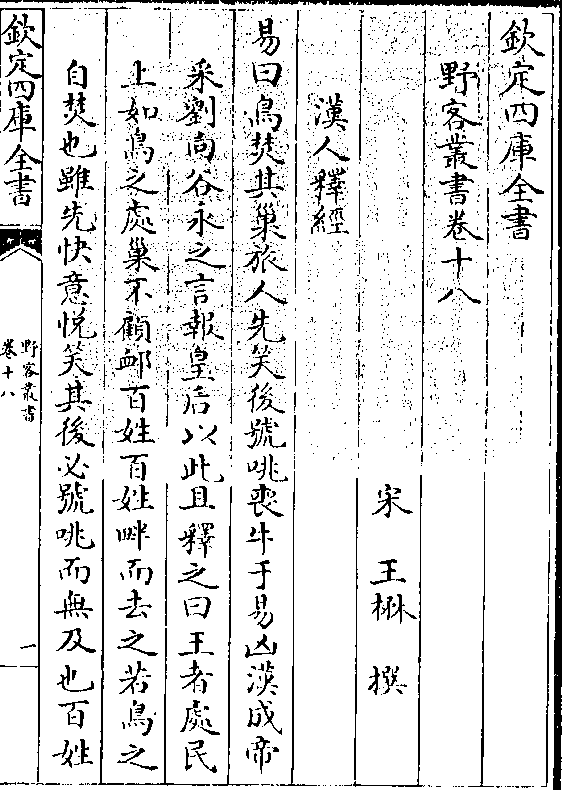 欽定四庫全書
野客叢書卷十八
宋 王楙 撰
漢人釋經
易曰鳥焚其巢旅人先笑後號咷喪牛于易凶漢成帝
采劉向谷永之言報皇后以此且釋之曰王者處民
上如鳥之處巢不顧䘏百姓百姓畔而去之若鳥之
自焚也雖先快意悅笑其後必號咷而無及也百姓
欽定四庫全書
野客叢書
卷十八
一